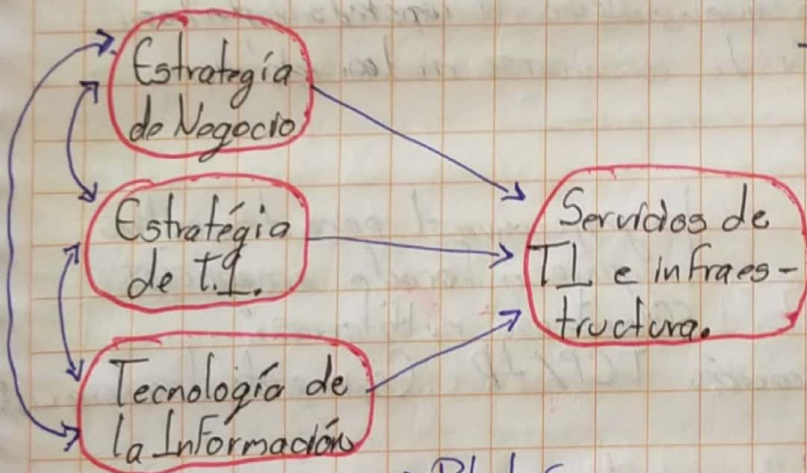 Estrategía
de Negocio
Estratégia
de T.I.
Tecnología de
la Información
Servicios de
TI e infraes-
tructura.